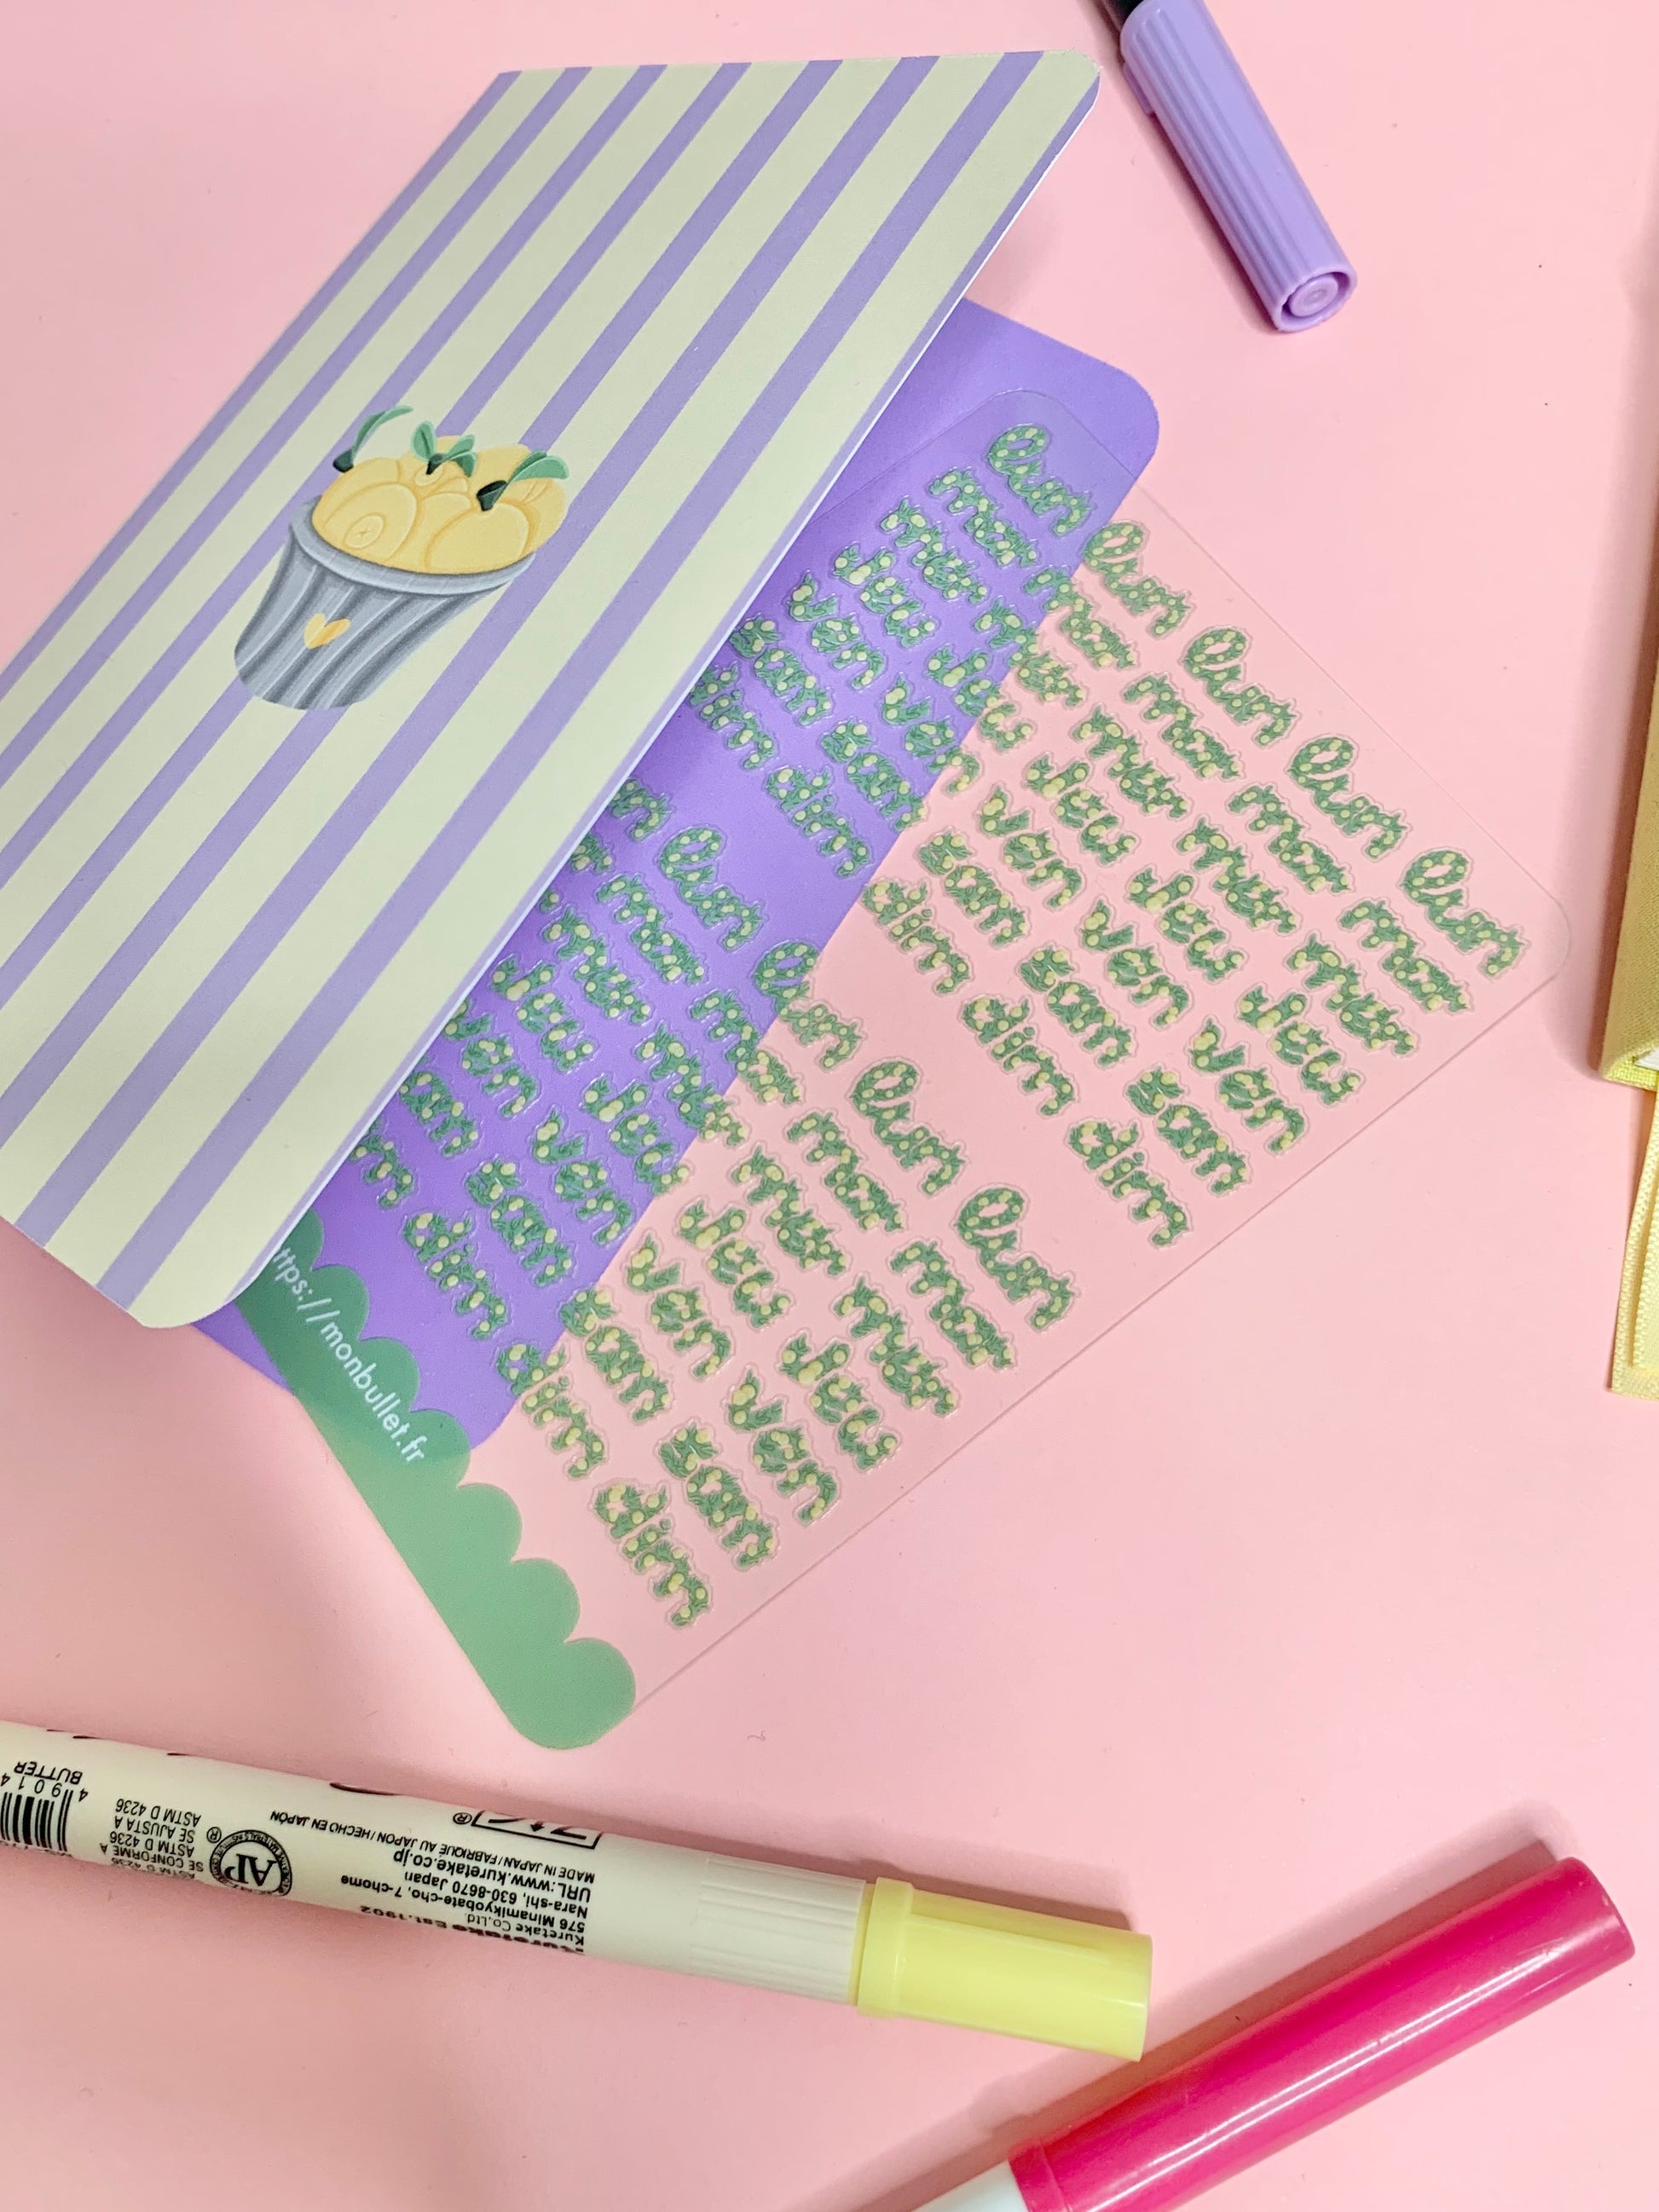 lun lun lun lun lun
mar mar mar mar mar
mer mer mer mer mer
jeu jeu jeu jeu jeu
ven ven ven ven ven
sam sam sam sam sam
dim dim dim dim dim
lun lun lun lun
mar mar mar mar
mer mer mer mer
jeu jeu jeu jeu
ven ven ven ven
sam sam sam
dim dim dim
ttps://monbullet.fr
Kuretake Est.1902
Kuretake Co.,Ltd.
576 Minamikyobate-cho, 7-chome
Nara-shi, 630-8670 Japan
URL:www.kuretake.co.jp
MADE IN JAPAN / FABRIQUE AU JAPON / HECHO EN JAPÓN
ZIG®
AP
ASTM D 4236
SE CONFORME A
ASTM D 4236
SE AJUSTA A
ASTM D 4236
4 9014
BUTTER